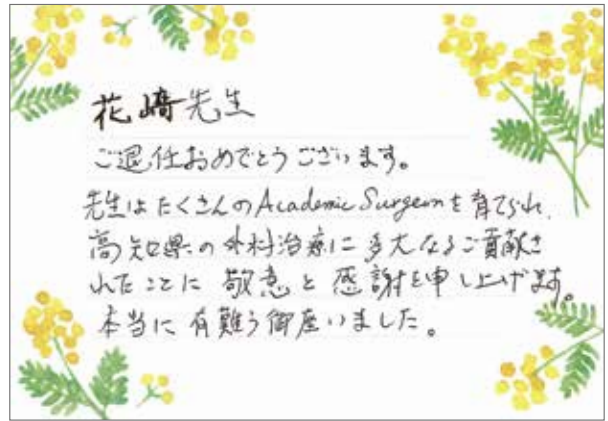 花崎先生
ご退任おめでとうございます。
先生はたくさんのAcademic Surgeonを育てられ、
高知県の外科治療に多大なるご貢献さ
れたことに敬意と感謝を申し上げます。
本当に有難う御座いました。